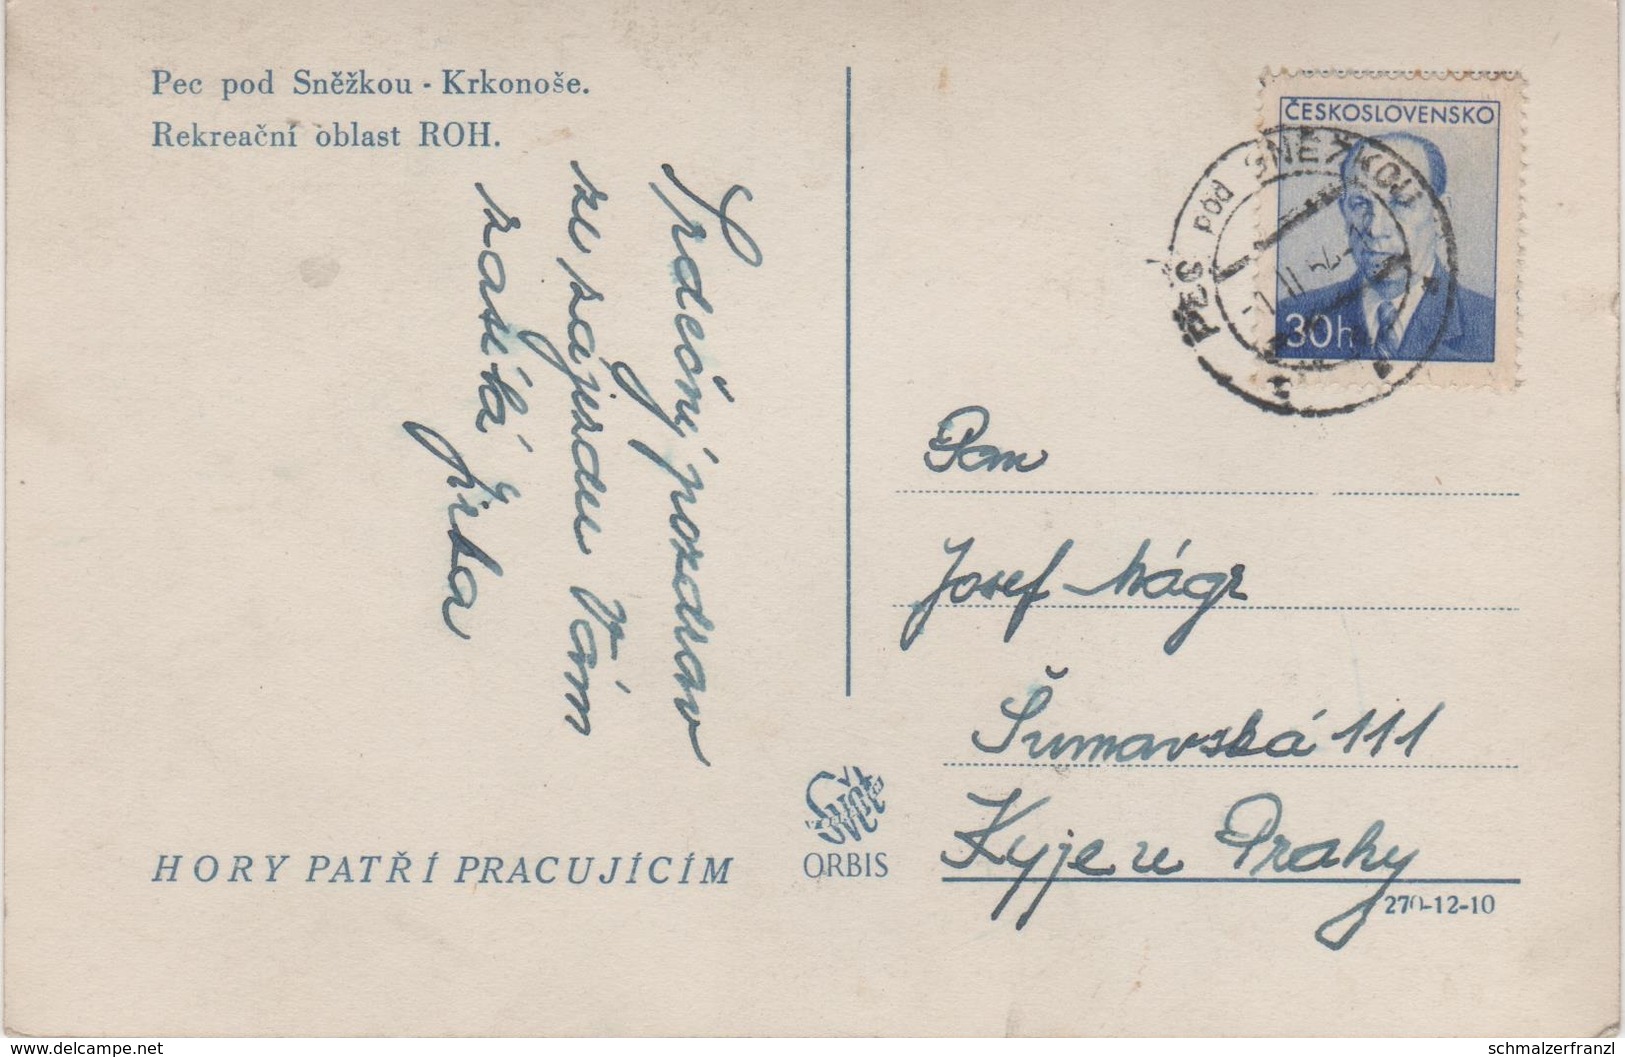 Pec pod Sněžkou - Krkonoše.
Rekreační oblast ROH.
Srdečný pozdrav
ze zájezdu Vám
zasílá Jirka
HORY PATŘÍ PRACUJÍCÍM
ORBIS
ČESKOSLOVENSKO
30h
PEC pod SNĚŽKOU
Pan
Josef Mágr
Šumavská 111
Kyje u Prahy
270-12-10
www.delcampe.net
schmalzerfranzl